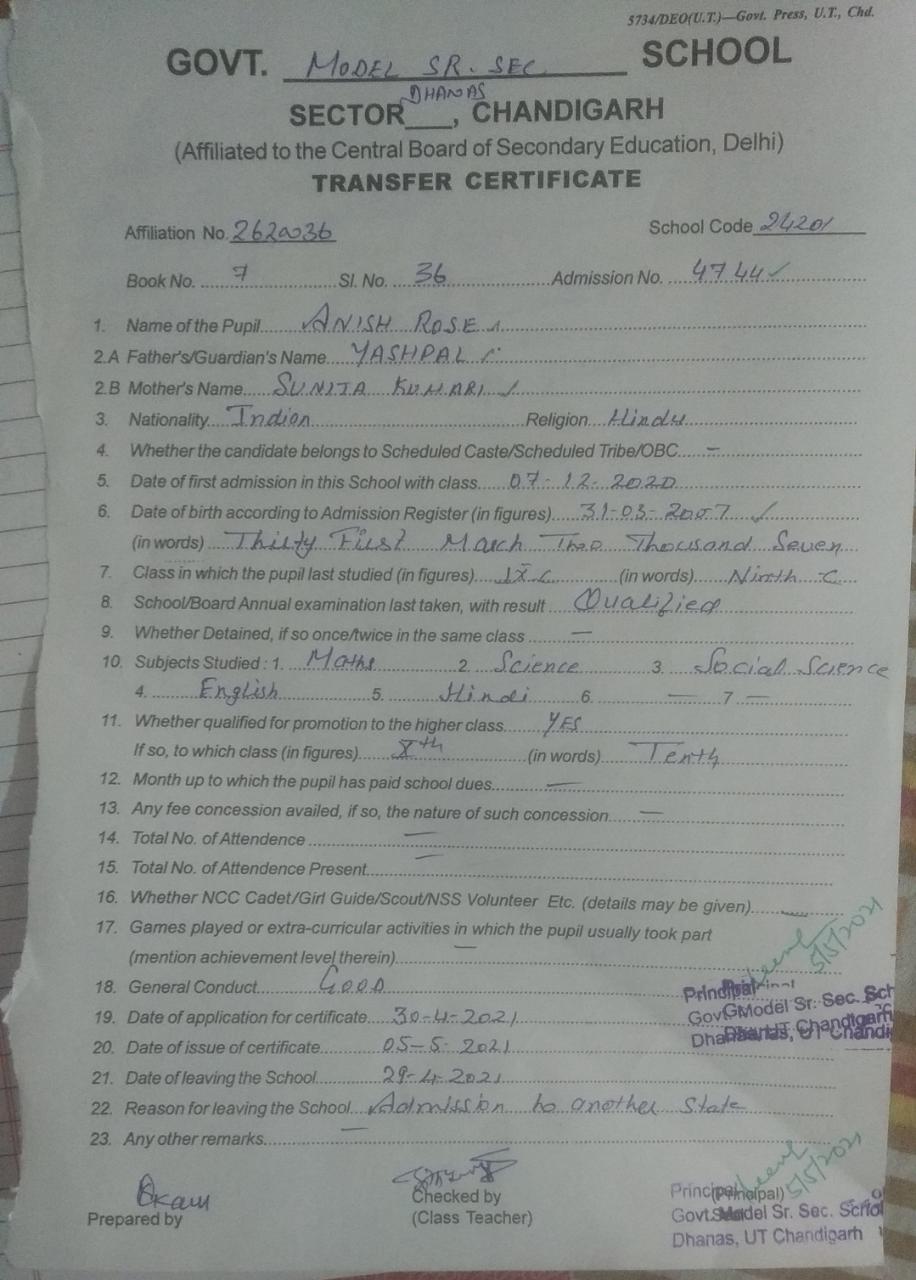 5734/DEO(U.T.)—Govt. Press, U.T., Chd.
GOVT. MODEL SR. SEC SCHOOL
DHANAS
SECTOR___, CHANDIGARH
(Affiliated to the Central Board of Secondary Education, Delhi)
TRANSFER CERTIFICATE
Affiliation No. 2620036 School Code 24201
Book No. 7 Sl. No. 36 Admission No. 4744 ✓
1. Name of the Pupil ANISH ROSE
2.A Father's/Guardian's Name YASHPAL
2.B Mother's Name SUNITA KUMARI ✓
3. Nationality Indian Religion Hindu
4. Whether the candidate belongs to Scheduled Caste/Scheduled Tribe/OBC —
5. Date of first admission in this School with class 07-12-2020
6. Date of birth according to Admission Register (in figures) 31-03-2007 ✓
(in words) Thirty First March Two Thousand Seven
7. Class in which the pupil last studied (in figures) IX C (in words) Ninth C
8. School/Board Annual examination last taken, with result Qualified
9. Whether Detained, if so once/twice in the same class —
10. Subjects Studied : 1. Maths 2. Science 3. Social Science
4. English 5. Hindi 6. — 7 —
11. Whether qualified for promotion to the higher class YES
If so, to which class (in figures) Xth (in words) Tenth
12. Month up to which the pupil has paid school dues —
13. Any fee concession availed, if so, the nature of such concession —
14. Total No. of Attendence —
15. Total No. of Attendence Present —
16. Whether NCC Cadet/Girl Guide/Scout/NSS Volunteer Etc. (details may be given) —
17. Games played or extra-curricular activities in which the pupil usually took part
(mention achievement level therein) —
5/5/2021
18. General Conduct GOOD
Principal
Govt Model Sr. Sec. Sch
Dhanas, UT Chandigarh
19. Date of application for certificate 30-4-2021
20. Date of issue of certificate 05-5-2021
21. Date of leaving the School 29-4-2021
22. Reason for leaving the School Admission to another State
23. Any other remarks —
5/5/2021
Prepared by
Checked by
(Class Teacher)
(Principal)
Principal
Govt. Model Sr. Sec. School
Dhanas, UT Chandigarh